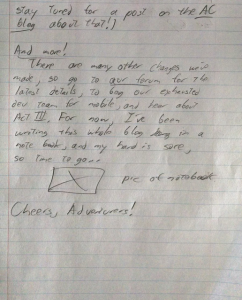 stay tuned for a post on the AC
blog about that!)
And more!
There are many other changes we've
made, so go to our forum for the
latest details, to bug our exhausted
dev team for mobile, and hear about
Act III. For now, I've been
writing this whole blog in a
note book, and my hand is sore,
so time to game
pic of notebook
Cheers, Adventurers!